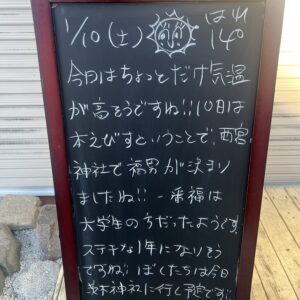 1/10(土) はれ
14°
今日はちょっとだけ気温
が高そうですね!! 10日は
本えびすということで、西宮
神社で福男が決まり
ましたね!! 一番福は
大学生の方だったようです。
ステキな1年になりそう
ですね!! ぼくたちは今日
茨木神社に行く予定です!!